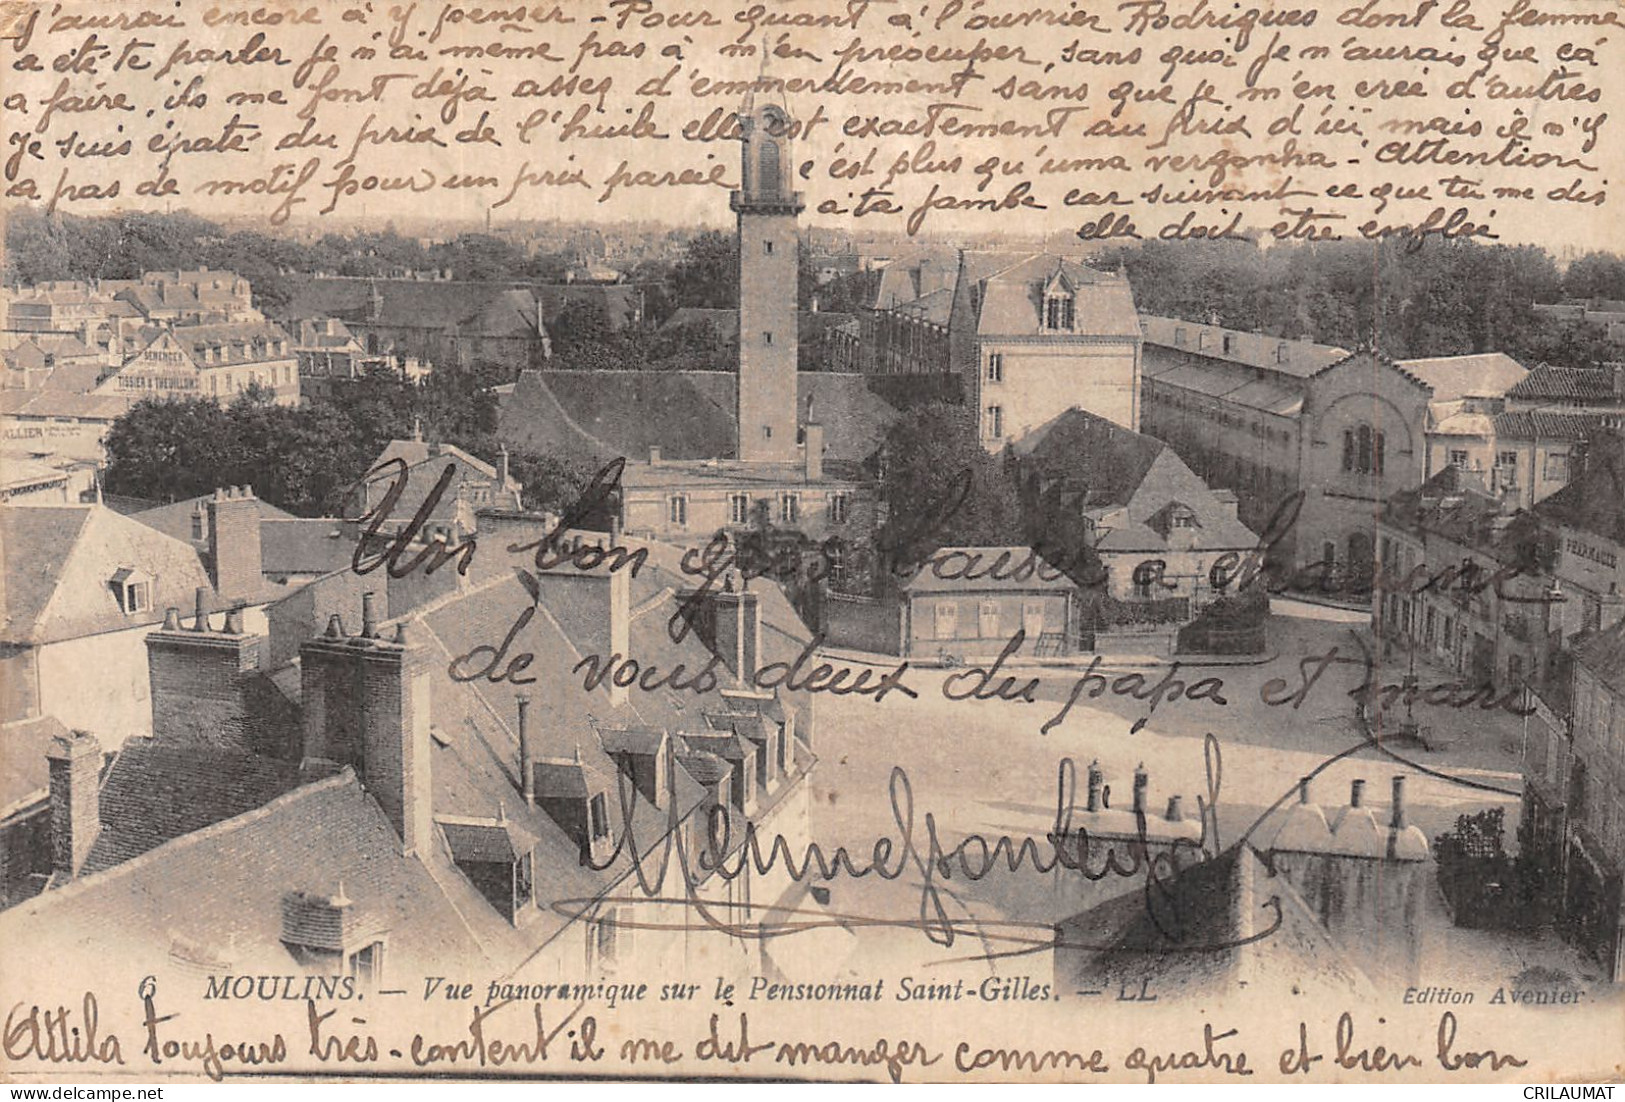 j'aurai encore à y penser - Pour quant à l'ouvrier Rodrigues dont la femme
a été te parler je n'ai même pas à m'en préocuper, sans quoi je n'aurais que ça
a faire, ils me font déjà assez d'emmerdement sans que je m'en crée d'autres
Je suis épaté du prix de l'huile elle est exactement au prix d'ici mais il n'y
a pas de motif pour un prix pareil c'est plus qu'uma vergonha - Attention
a ta jambe car suivant ce que tu me dis
elle doit être enflée
BERENGER
TISSIER & THEVILLON
ALLIER
PHARMACIE
Un bon gros baiser a chacune
de vous deux du papa et mari
6 MOULINS. — Vue panoramique sur le Pensionnat Saint-Gilles. — LL
Edition Avenier
Attila toujours très-content il me dit manger comme quatre et bien bon
CRILAUMAT